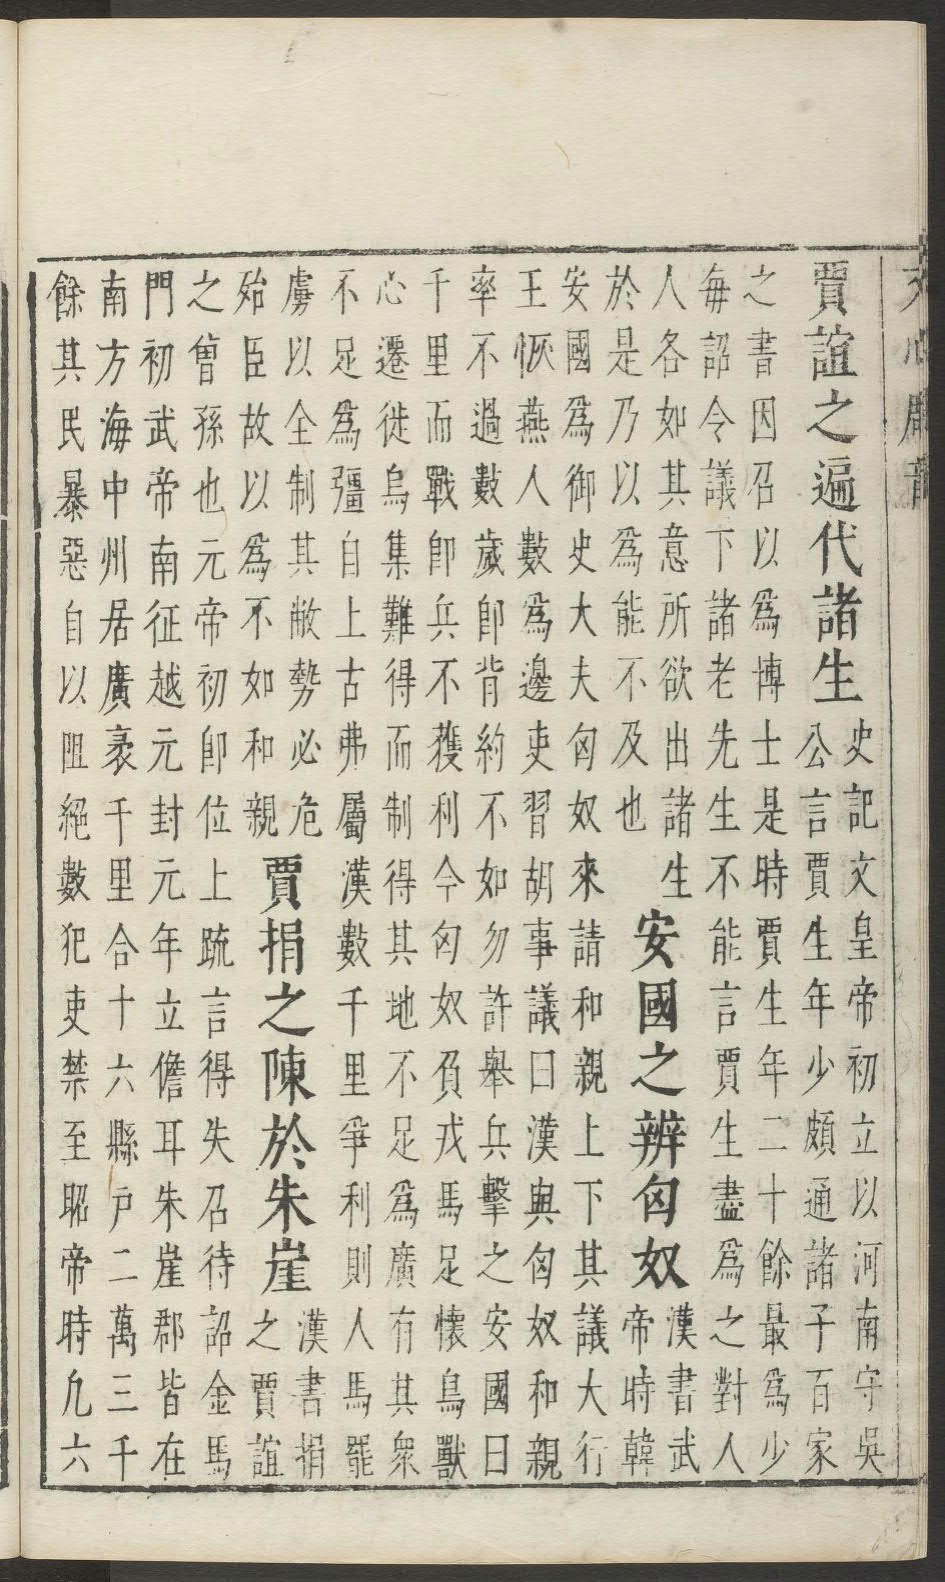 賈誼之遍代諸生
史記文皇帝初立以河南守吳
公言賈生年少頗通諸子百家
之書因召以爲博士是時賈生年二十餘最爲少
每詔令議下諸老先生不能言賈生盡爲之對人
人各如其意所欲出諸生
於是乃以爲能不及也
安國之辨匈奴
漢書武
帝時韓
安國爲御史大夫匈奴來請和親上下其議大行
王恢燕人數爲邊吏習胡事議曰漢與匈奴和親
率不過數歲卽背約不如勿許舉兵擊之安國曰
千里而戰卽兵不獲利今匈奴負戎馬足懷鳥獸
心遷徙鳥集難得而制得其地不足爲廣有其衆
不足爲彊自上古弗屬漢數千里爭利則人馬罷
虜以全制其敝勢必危
殆臣故以爲不如和親
賈捐之陳於朱崖
漢書捐
之賈誼
之曾孫也元帝初卽位上疏言得失召待詔金馬
門初武帝南征越元封元年立儋耳朱崖郡皆在
南方海中州居廣袤千里合十六縣戶二萬三千
餘其民暴惡自以阻絕數犯吏禁至昭帝時凡六